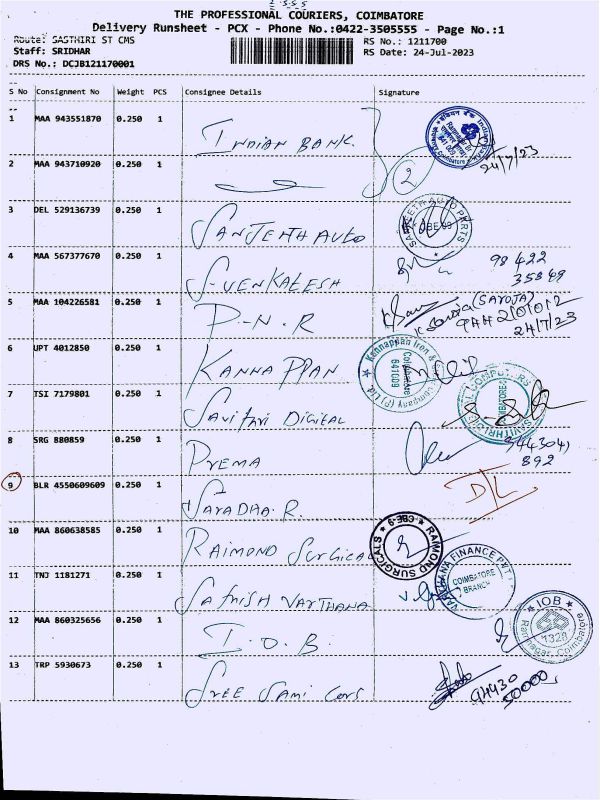 THE PROFESSIONAL COURIERS, COIMBATORE
Delivery Runsheet - PCX - Phone No.:0422-3505555 - Page No.:1
Route: SASTHIRI ST CMS RS No.: 1211700
Staff: SRIDHAR RS Date: 24-Jul-2023
DRS No.: DCJB121170001
S No Consignment No Weight PCS Consignee Details Signature
1 MAA 943551870 0.250 1 INDIAN BANK
24/7/23
2 MAA 943710920 0.250 1 2
3 DEL 529136739 0.250 1 SANJEETH AUTO
4 MAA 567377670 0.250 1 S. VENKATESH 98422
35849
5 MAA 104226581 0.250 1 P-N.R (SAROJA)
24/7/23
6 UPT 4012850 0.250 1 KANNAPPAN
Kannappan Iron & Company (P) Ltd.
Coimbatore
641009
7 TSI 7179801 0.250 1 Savithri Digital
8 SRG 880859 0.250 1 PREMA
892
9 BLR 4550609609 0.250 1 SARADAA. R. D/L
10 MAA 860638585 0.250 1 RAIMOND SURGICAL
RAIMOND SURGICALS
11 TNJ 1181271 0.250 1 SATHISH VARTHANA
VARTHANA FINANCE PVT
COIMBATORE
BRANCH
12 MAA 860325656 0.250 1 I.O.B.
IOB
1328
Ramnagar, Coimbatore
13 TRP 5930673 0.250 1 SREE SAMI CORS
94430
50000